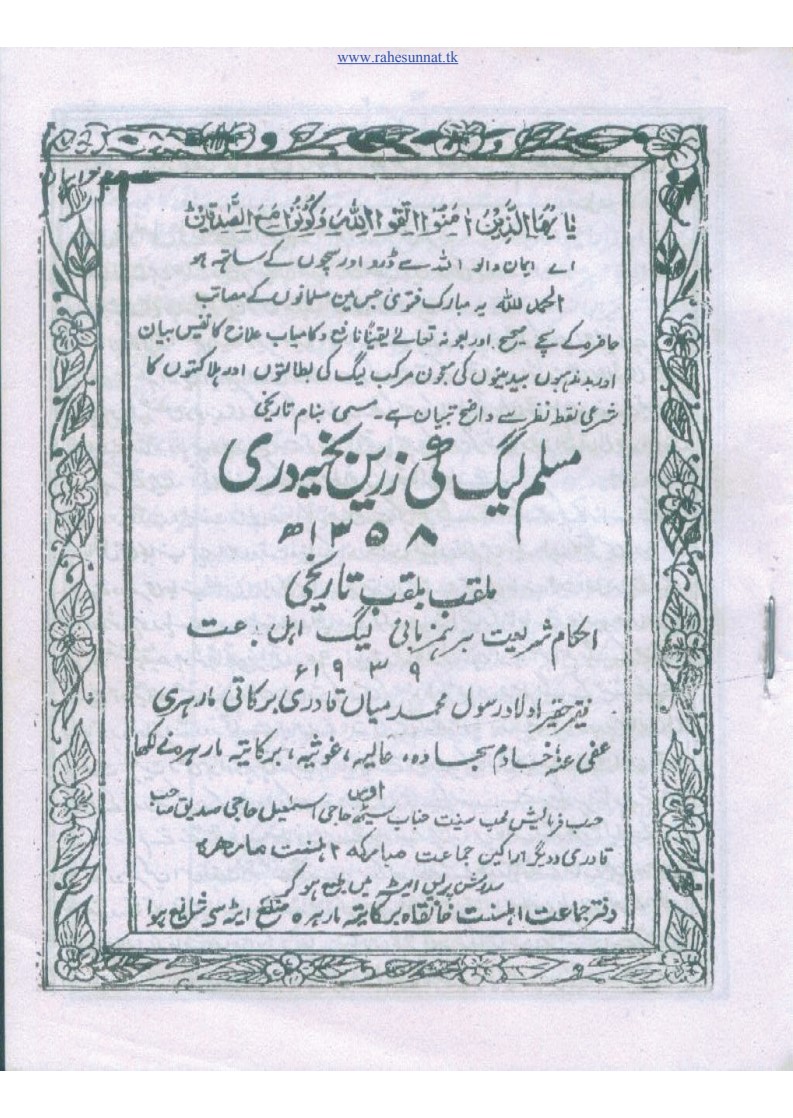 www.rahesunnat.tk
یٰۤاَیُّهَا الَّذِیْنَ اٰمَنُوا اتَّقُوا اللّٰهَ وَکُوْنُوْا مَعَ الصّٰدِقِیْنَ
اے ایمان والو اللہ سے ڈرو اور سچوں کے ساتھ ہو
الحمد للہ یہ مبارک فتویٰ جس میں مسلمانوں کے مصائب
حاضرہ کے سچے صحیح اور بعونہ تعالےٰ یقیناً نافع وکامیاب علاج کا نفیس بیان
اور بدمذہبوں بیدینوں کی معجون مرکب لیگ کی بطالتوں اور ہلاکتوں کا
شرعی نقطۂ نظر سے واضح تبیان ہے۔ مسمی بنام تاریخی
مسلم لیگ کی زریں بخیہ دری
۱۳۵۸ھ
ملقب بلقب تاریخی
احکام شریعت لیگ
۱۹۳۹ء
فقیر حقیر اولاد رسول محمد میاں قادری برکاتی مارہری
عفی عنہ خادم سجادہ، عالیہ، غوثیہ، برکاتیہ مارہرہ نے لکھا
حسب فرمائش محب سنیت جناب سیٹھ حاجی اسمٰعیل حاجی صدیق صاحب
قادری و دیگر اراکین جماعت مبارکہ اہلسنت مارہرہ
پریس میں طبع ہو کر
دفتر جماعت اہلسنت خانقاہ برکاتیہ مارہرہ ضلع ایٹہ سے شائع ہوا